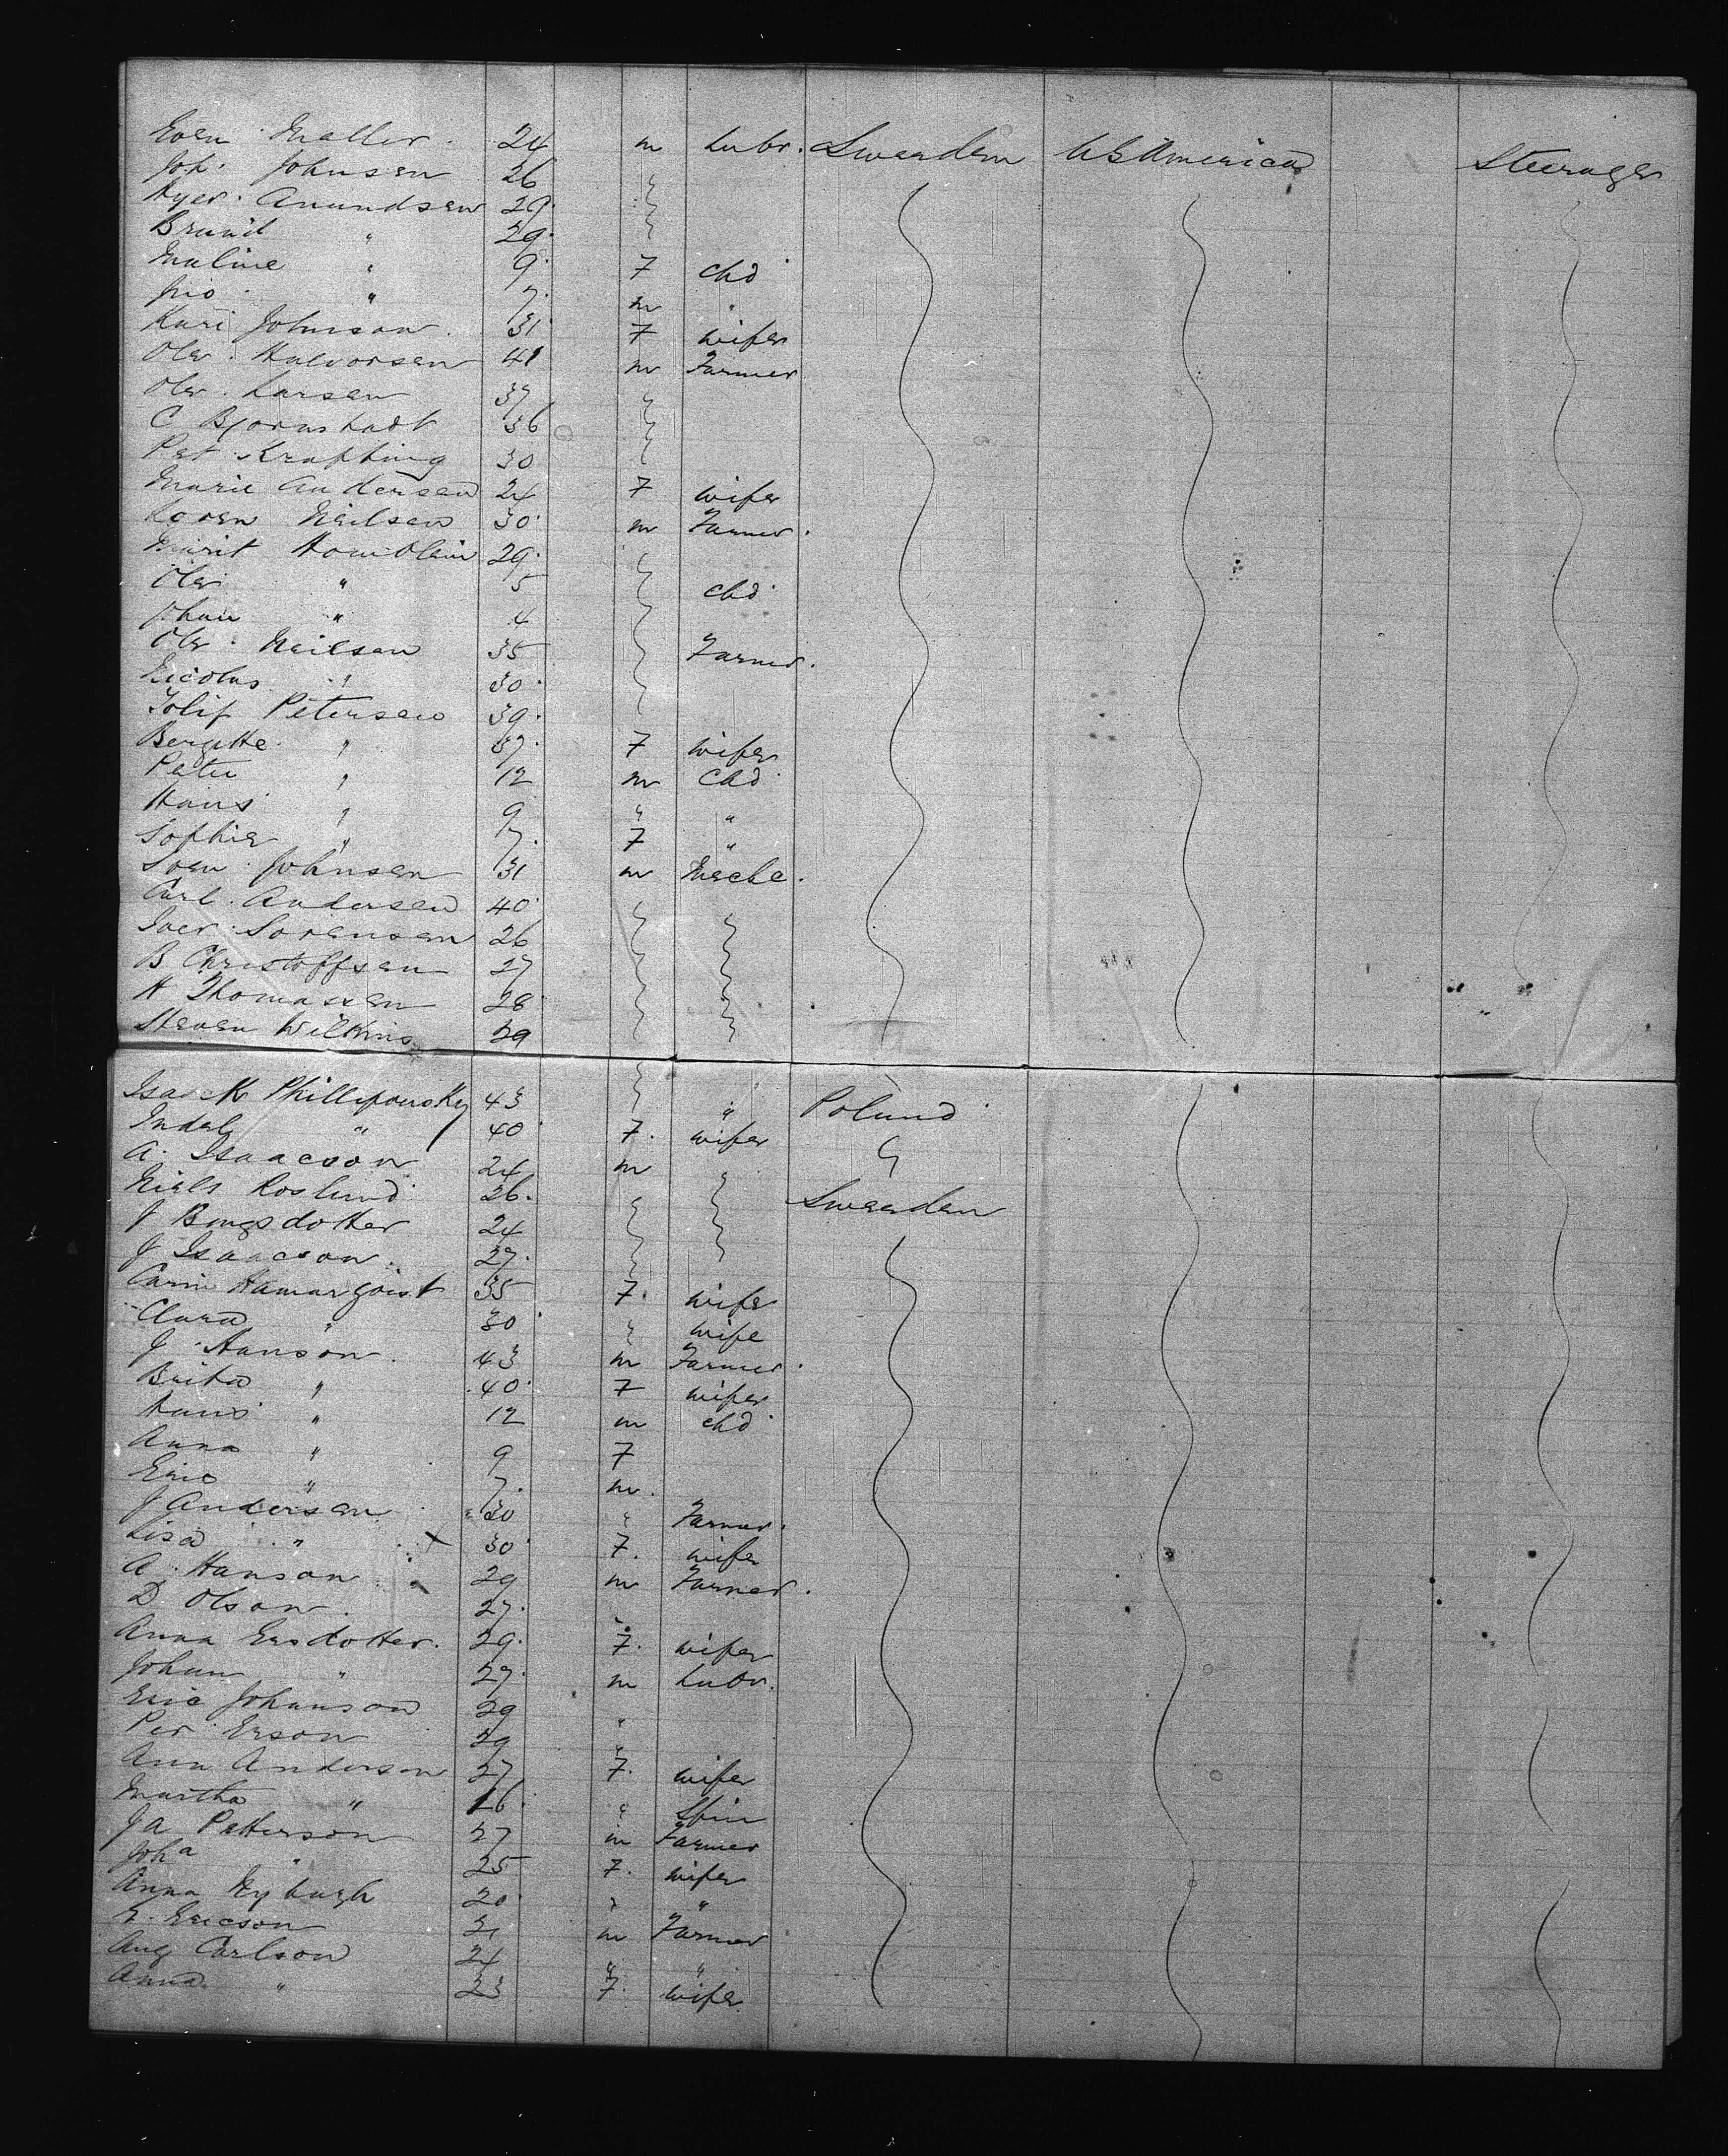 Even Maller 24 m Labr. Sweeden U S America Steerage
Joh. Johnsen 26
Amundsen 29
" 29
Maline " 9 F chd
" 7 m "
Kari Johnson 31 F wife
Ole Halvorsen 41 m Farmer
Ole Larsen 37
C Bjornstadt 36
Pet Krafting 30
Marie Andersen 24 F wife
Soren Neilsen 30 m Farmer.
Marit 29
Ole " 5 chd
Johan " 4
Ole Neilsen 35 Farmer.
Nicolas " 30
Tolif Petersen 39
Bergitte " 37 F wife
Peter " 12 m chd
Hans " 9 " "
Sophie " 7 F "
Sven Johnsen 31 m Mecha.
Carl Andersen 40
Iver Sorensen 26
B Christoffsen 27
H Thomassen 28
Steven Wilkins 29
Isaack Phillipousky 43 " Poland
" 40 F. wife
A. Isaacson 24 m
Niels Roslund 26. Sweeden
J Bengsdotter 24
J Isaacson 27.
Carin Hamarqoist 35 F. wife
Clara " 30 " wife
J Hanson 43 m Farmer.
Brita " 40 F wife
Hans " 12 m chd
Anna " 9 F
Eric " 7. m.
J Andersen 30 " Farmer.
Lisa " x 30 F. wife
A. Hanson 29 m Farmer.
D Olson 27.
Anna Ersdotter. 29. F. wife
Johan " 27. m Labr.
Eric Johanson 29 "
Per Erson 29 "
Ann Anderson 27 F. wife
Martha " 16 " Spin
J A Petterson 27 m Farmer
Joha " 25 F. wife
Anna 20 " "
E. Ericson 31 m Farmer
Aug Carlson 24 " "
Anna " 23 F. wife